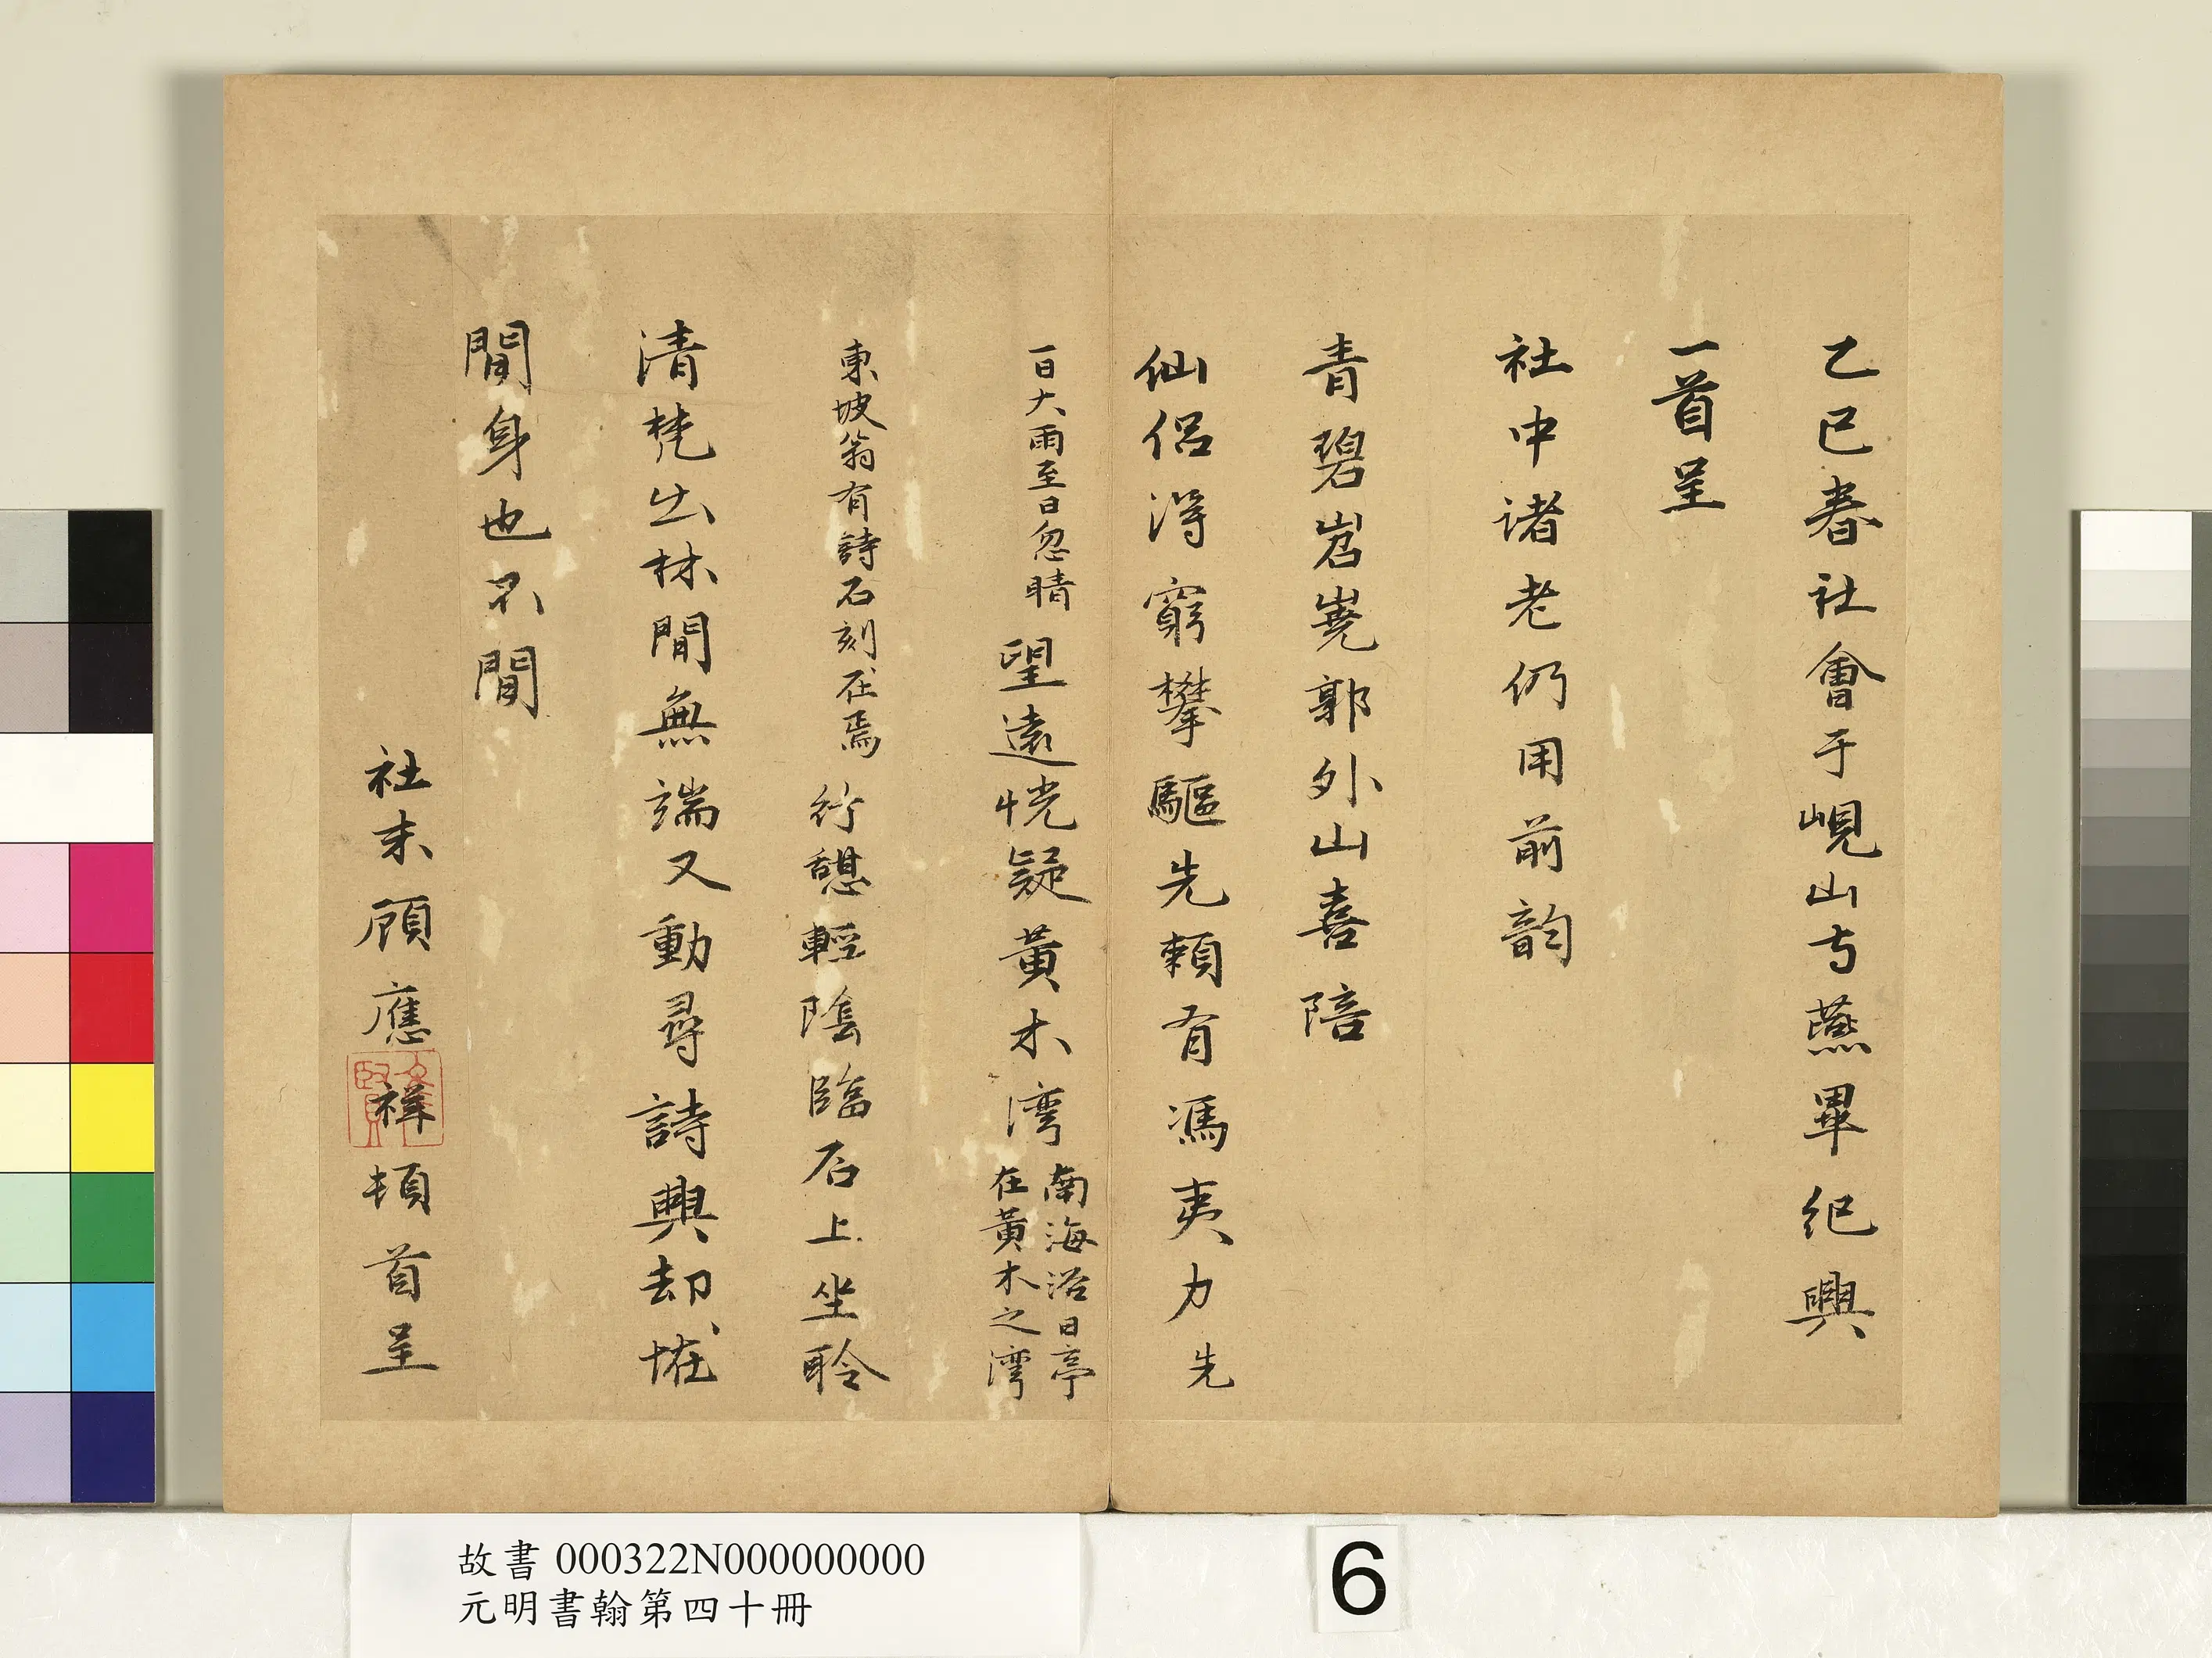 乙巳春社會于峴山寺燕畢紀興
一首呈
社中諸老仍用前韵
青碧岧嶤郭外山喜陪
仙侶得窮攀驅先賴有馮夷力先
一日大雨至日忽晴望遠恍疑黃木湾南海浴日亭
在黃木之湾
東坡翁有詩石刻在焉行憩輕陰臨石上坐聆
清梵出林間無端又動尋詩興却恠
閒身也不閒
社末顧應祥頓首呈
故書 000322N000000000
元明書翰第四十冊
6